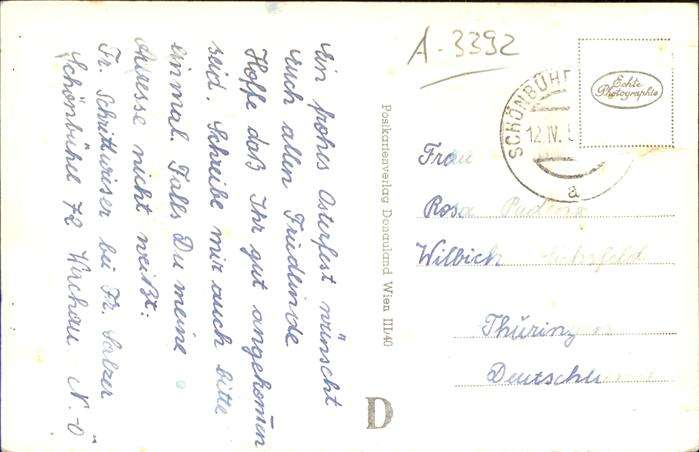 Ein frohes Osterfest wünscht
euch allen Friedlinde
Hoffe daß Ihr gut angekommen
seid. Schreibe mir auch bitte
einmal. Falls Du meine
Adresse nicht weißt:
Fr. Schrittwieser bei Fr. Salzer
Schönbühel 72 Wachau N.-Ö
Postkartenverlag Donauland Wien III/40
D
A-3392
Echte
Photographie
SCHÖNBÜHE
12.IV.5
a
Frau
Rosa
Wilbich
Thüring
Deutschl